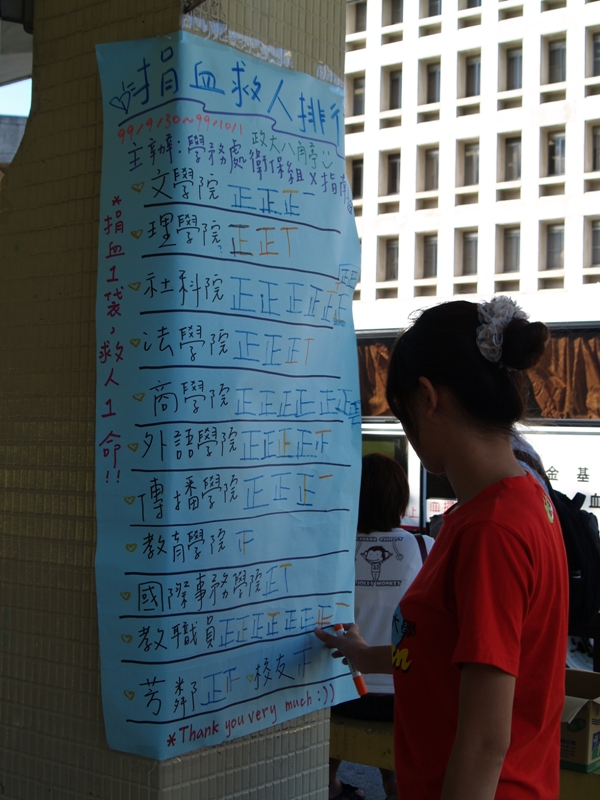 捐血救人排行
99/9/30~99/10/1
政大八角亭
主辦:學務處衛保組×指南
文學院 正正正一
理學院 正正T
社科院 正正正正正正 正正
法學院 正正正T
商學院 正正正正正正正
外語學院 正正正正正
傳播學院 正正正一
教育學院
國際事務學院正T
教職員正正正正正正正一
芳鄰 正 校友 正
*Thank you very much :))
*捐血1袋,救人1命!!
金 基
血